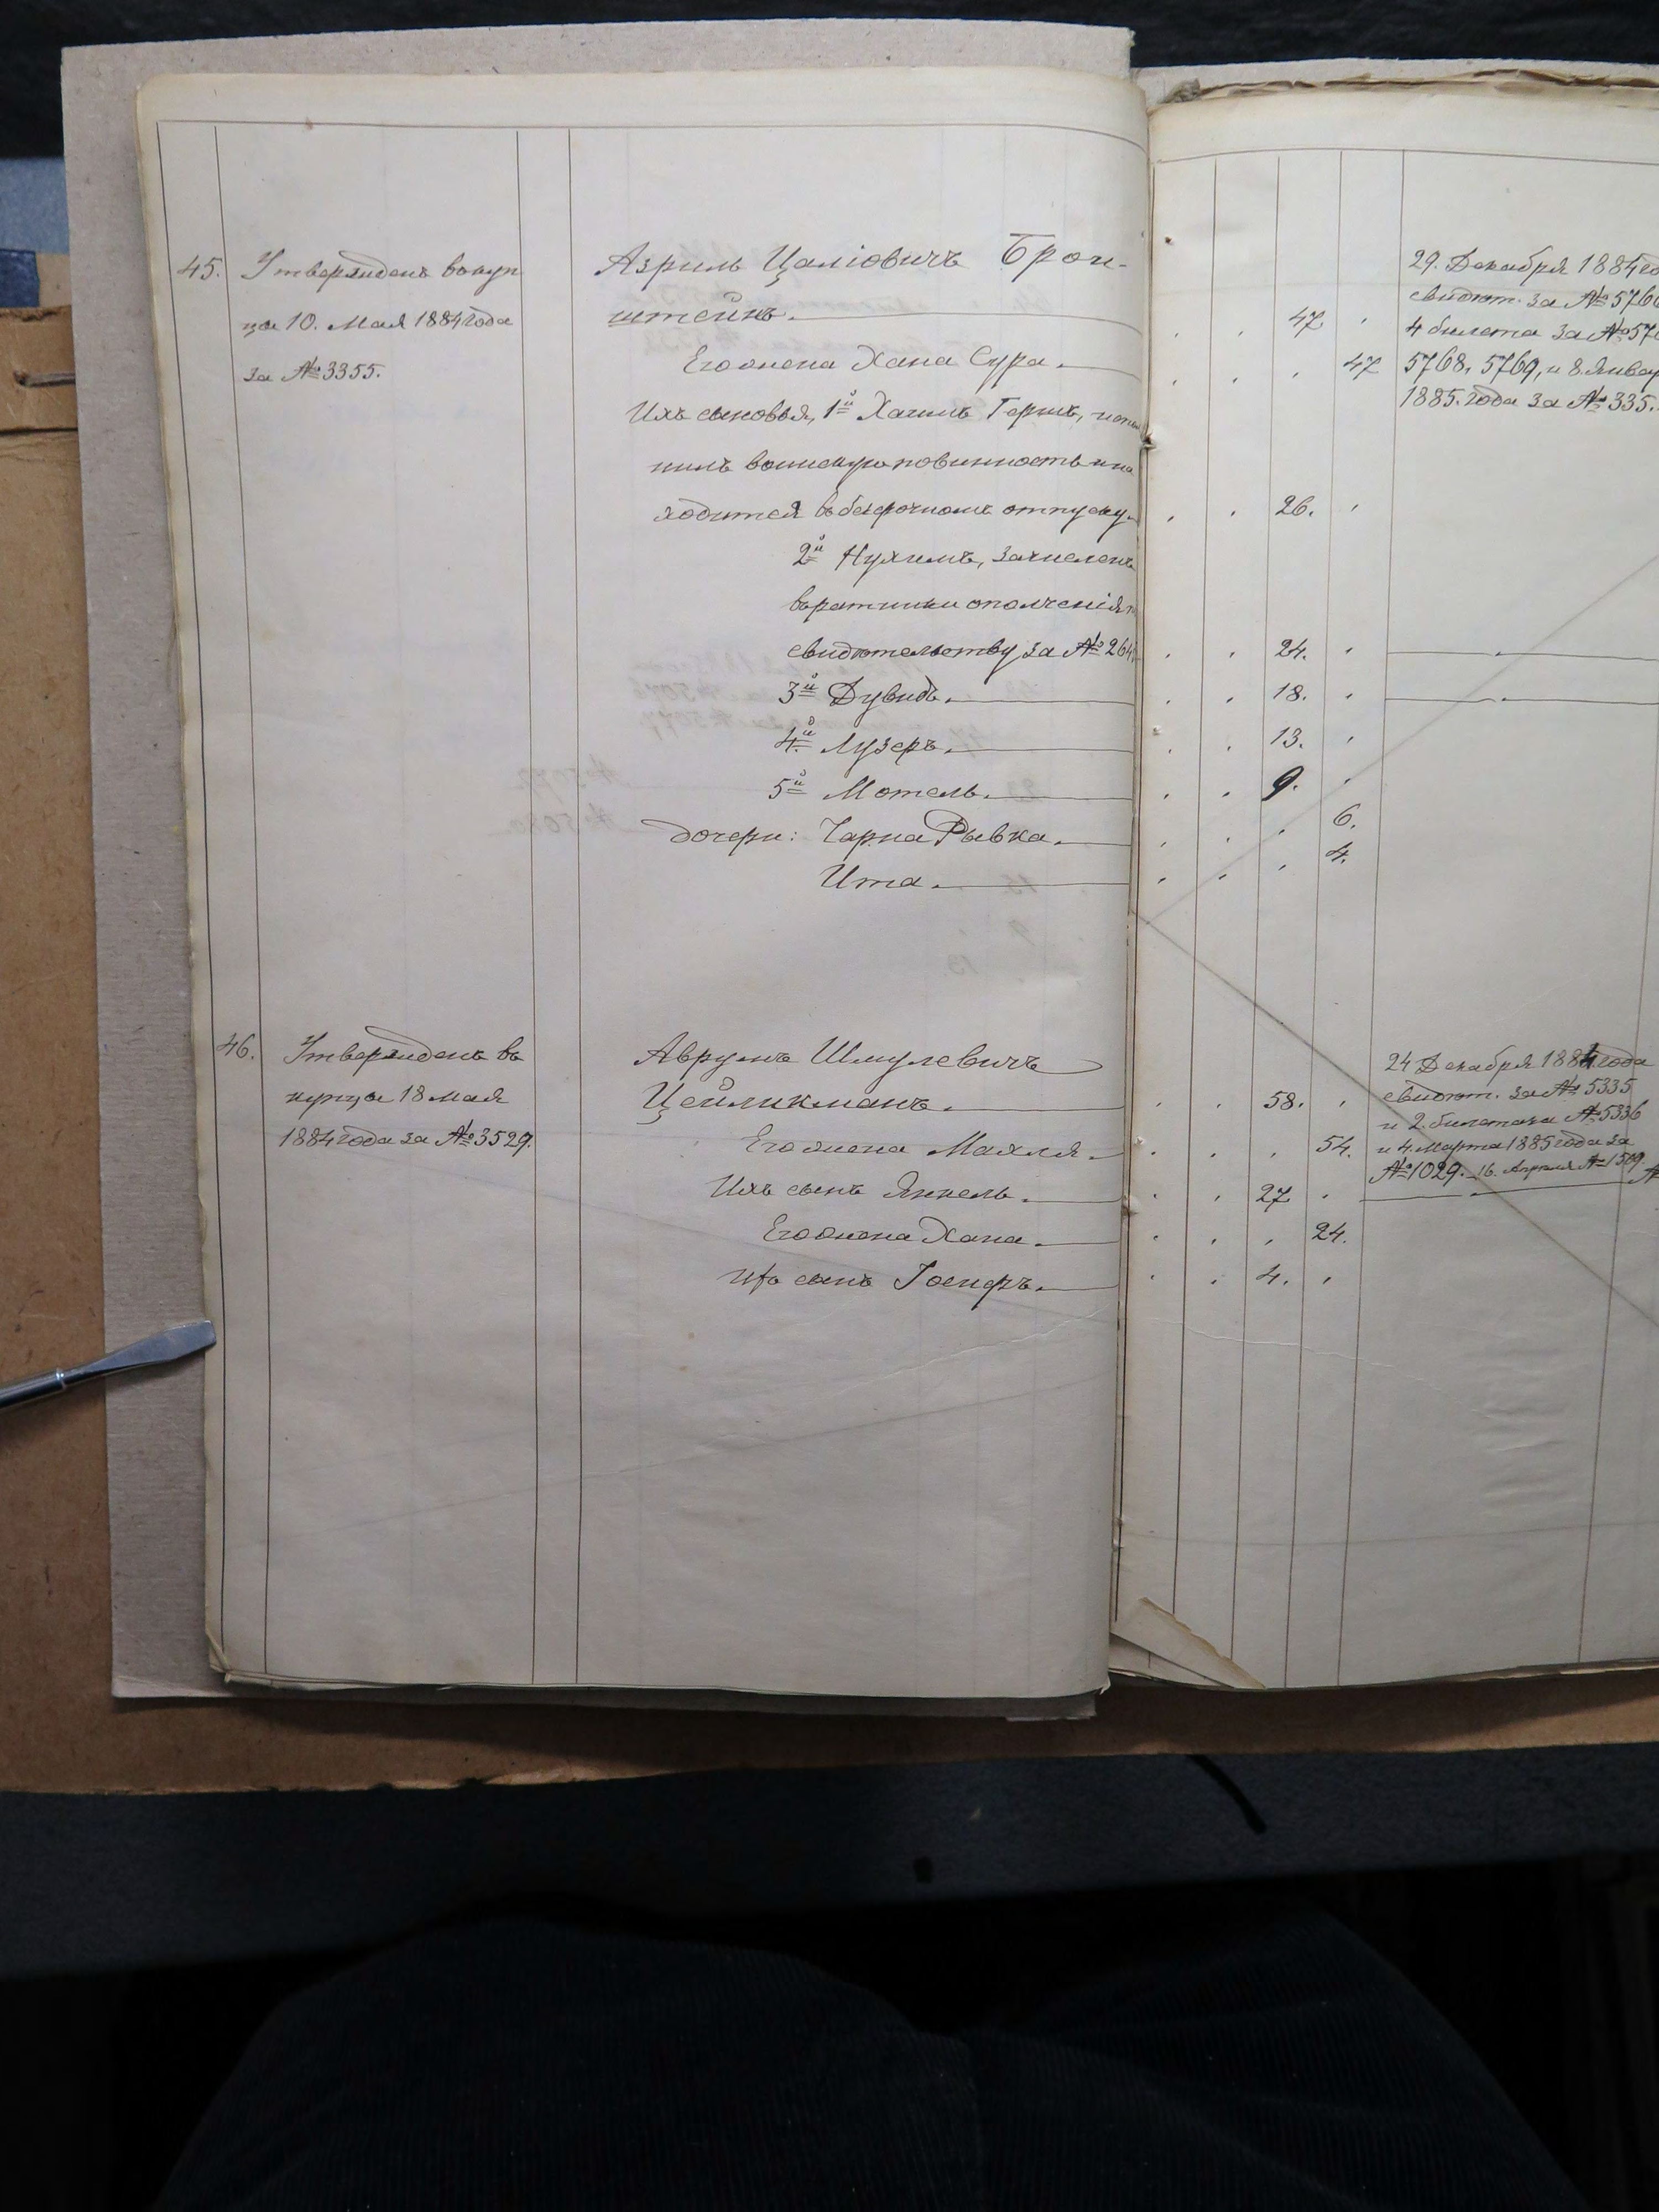 45.
Утвержденъ вокуп
ца 10. Мая 1884 года
за № 3355.
Азриль Цаліовичъ Брон-
штейнъ.
Его жена Хана Сура.
Ихъ сыновья, 1й Хаимъ Гершъ,
нилъ воинскую повинность и на
ходится въ безсрочномъ отпуску.
2й Нухимъ, зачисленъ
въ ратники ополченія
свидѣтельству за № 264
3й Дувидъ.
4й Лузеръ.
5й Мотель.
дочери: Чарна Рывка.
Ита.
47
47
26.
24.
18.
13.
9.
6.
4.
29. Декабря 1884 го
свидѣт. за № 576
4 билета за № 576
5768, 5769, и 8. Январ
1885. года за № 335.
46.
Утвержденъ въ
купцы 18 Мая
1884 года за № 3529.
Аврумъ Шмулевичъ
Цейликманъ.
Его жена Махля.
Ихъ сынъ Янкель.
Его жена Хана.
Ихъ сынъ Іосифъ.
58.
54.
27
24.
4.
24 Декабря 1884 года
свидѣт. за № 5335
и 2. билета за № 5336
и 4. Марта 1885 года за
№ 1029. 16. Апрѣля № 1509.